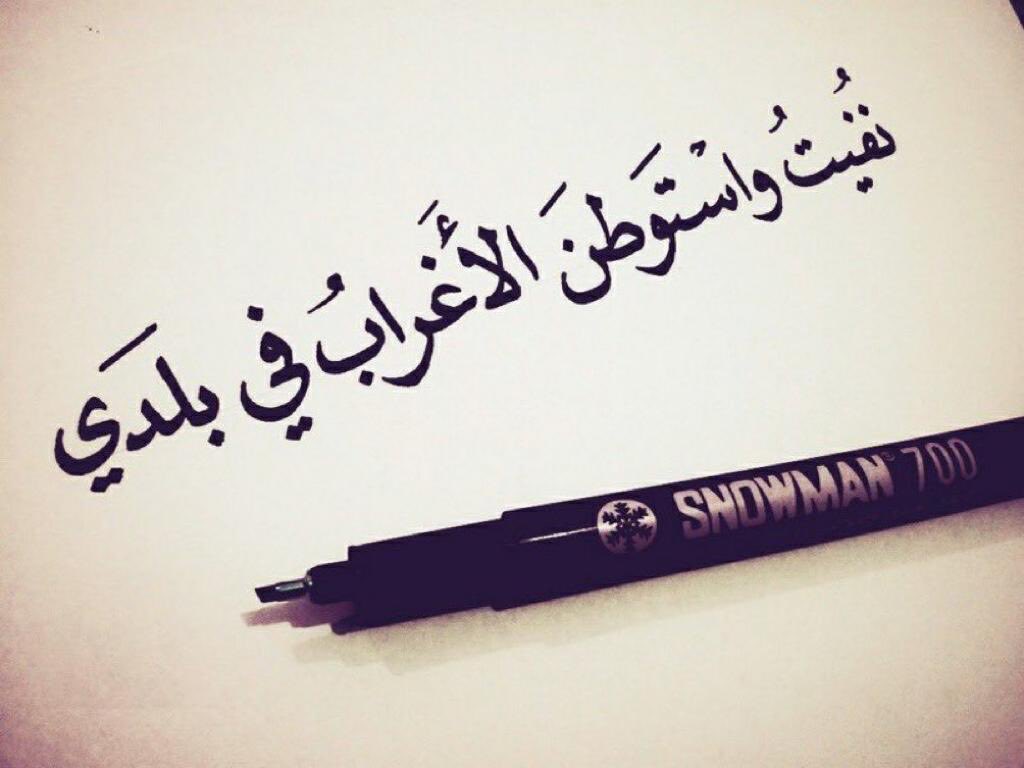 نُفيتُ واسْتَوَطنَ الأَغَرابُ في بلدَي
SNOWMAN® 700